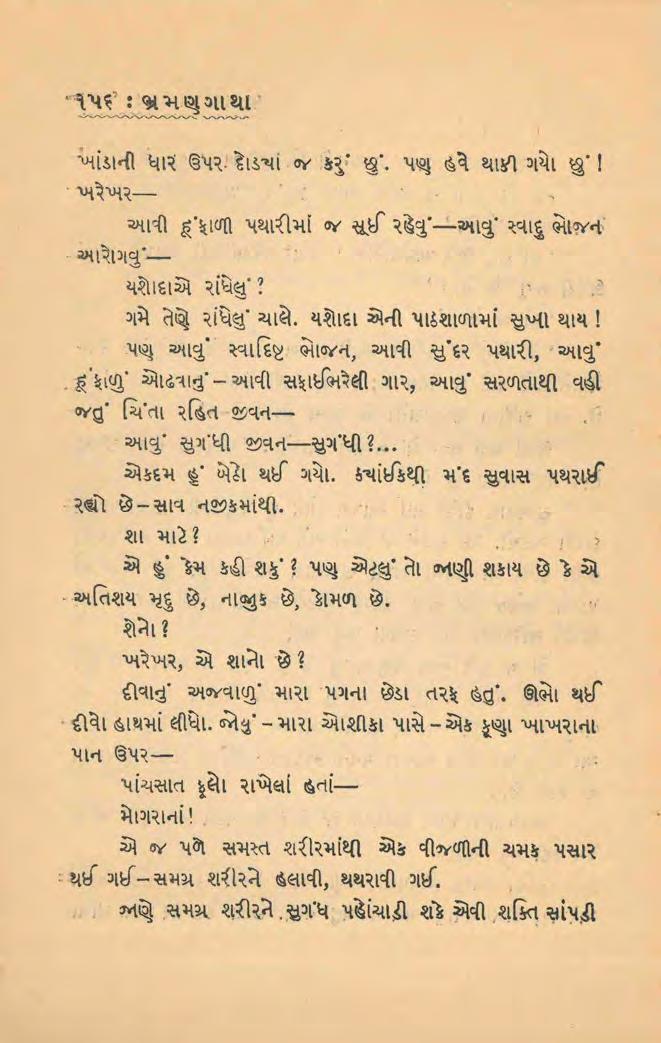 ૧૫૬ : ભ્રમણગાથા
ખાંડાની ધાર ઉપર દોડચાં જ કરું છું. પણ હવે થાકી ગયો છું !
ખરેખર—
આવી હૂંફાળી પથારીમાં જ સૂઈ રહેવું—આવું સ્વાદુ ભોજન
આરોગવું—
યશોદાએ રાંધેલું ?
ગમે તેણે રાંધેલું ચાલે. યશોદા એની પાઠશાળામાં સુખી થાય !
પણ આવું સ્વાદિષ્ટ ભોજન, આવી સુંદર પથારી, આવું
હૂંફાળું ઓઢવાનું – આવી સફાઈભરેલી ગાર, આવું સરળતાથી વહી
જતું ચિંતા રહિત જીવન—
આવું સુગંધી જીવન—સુગંધી ?...
એકદમ હું બેઠો થઈ ગયો. કચાંઈકથી મંદ સુવાસ પથરાઈ
રહ્યો છે – સાવ નજીકમાંથી.
શા માટે ?
એ હું કેમ કહી શકું ? પણ એટલું તો જાણી શકાય છે કે એ
અતિશય મૃદુ છે, નાજુક છે, કોમળ છે.
શેનો ?
ખરેખર, એ શાનો છે ?
દીવાનું અજવાળું મારા પગના છેડા તરફ હતું. ઊભો થઈ
દીવો હાથમાં લીધો. જોયું – મારા ઓશીકા પાસે – એક કૂણા ખાખરાના
પાન ઉપર—
પાંચસાત ફૂલો રાખેલાં હતાં—
મોગરાનાં !
એ જ પળે સમસ્ત શરીરમાંથી એક વીજળીની ચમક પસાર
થઈ ગઈ – સમગ્ર શરીરને હલાવી, થથરાવી ગઈ.
જાણે સમગ્ર શરીરને સુગંધ પહોંચાડી શકે એવી શક્તિ સાંપડી